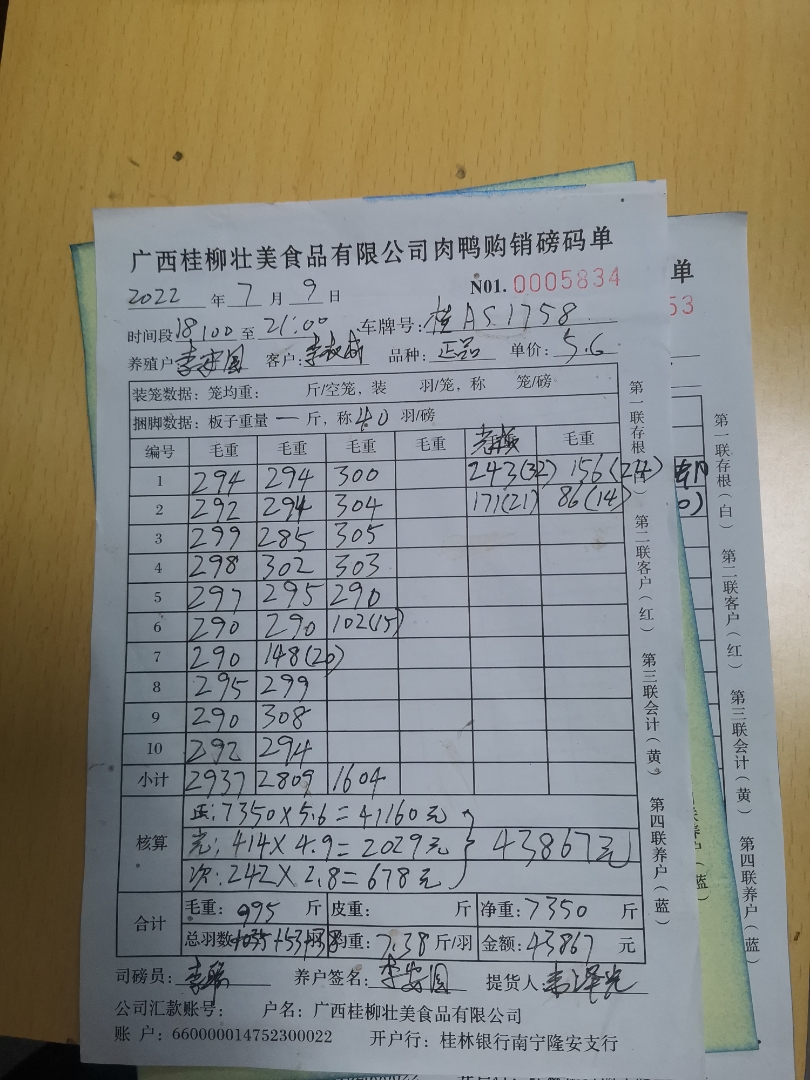 广西桂柳壮美食品有限公司肉鸭购销磅码单
2022 年 7 月 9 日 N01. 0005834
时间段 18:00 至 21:00 车牌号: 桂AS1758
养殖户 李安国 客户: 品种: 正品 单价: 5.6
装笼数据: 笼均重: 斤/空笼, 装 羽/笼, 称 笼/磅
捆脚数据: 板子重量 一 斤, 称 40 羽/磅
编号 毛重 毛重 毛重 毛重 毛重
1 294 294 300 243(32) 156(24)
2 292 294 304 171(21) 86(14)
3 299 285 305
4 298 302 303
5 297 295 290
6 290 290 102(15)
7 290 148(20)
8 295 299
9 290 308
10 292 294
小计 2937 2809 1604
核算
正: 7350×5.6=41160元
光: 414×4.9=2029元
次: 242×2.8=678元
43867元
合计
毛重: 995 斤 皮重: 斤 净重: 7350 斤
总羽数 +53+38 均重: 7.38 斤/羽 金额: 43867 元
司磅员: 养户签名: 李安国 提货人:
公司汇款账号: 户名: 广西桂柳壮美食品有限公司
账 户: 660000014752300022 开户行: 桂林银行南宁隆安支行
第一联存根
第二联客户(红)
第三联会计(黄)
第四联养户(蓝)
单
53
第一联存根(白)
第二联客户(红)
第三联会计(黄)
第四联养户(蓝)